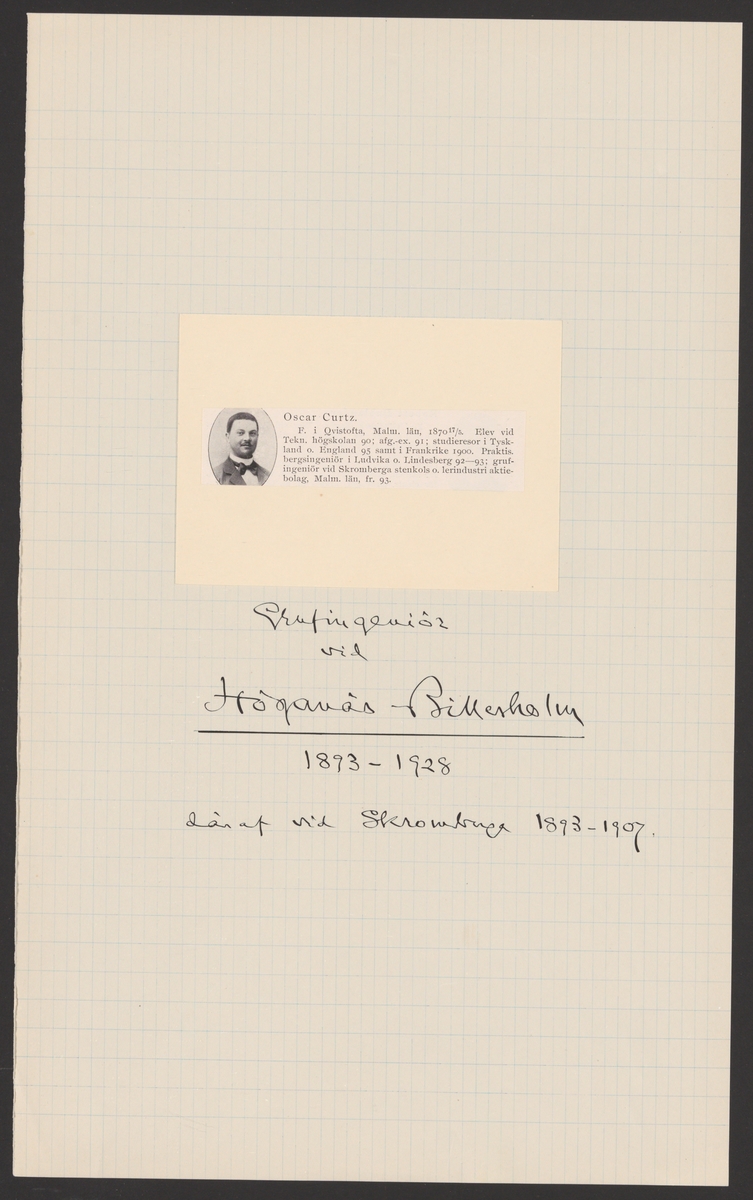 Oscar Curtz.
F. i Qvistofta, Malm. län, 1870 17/5. Elev vid
Tekn. högskolan 90; afg.-ex. 91; studieresor i Tysk-
land o. England 95 samt i Frankrike 1900. Praktis.
bergsingeniör i Ludvika o. Lindesberg 92—93; gruf-
ingeniör vid Skromberga stenkols o. lerindustri aktie-
bolag, Malm. län, fr. 93.
Grufingeniör
vid
Höganäs-Billesholm
1893 - 1928
däraf vid Skromberga 1893-1907.